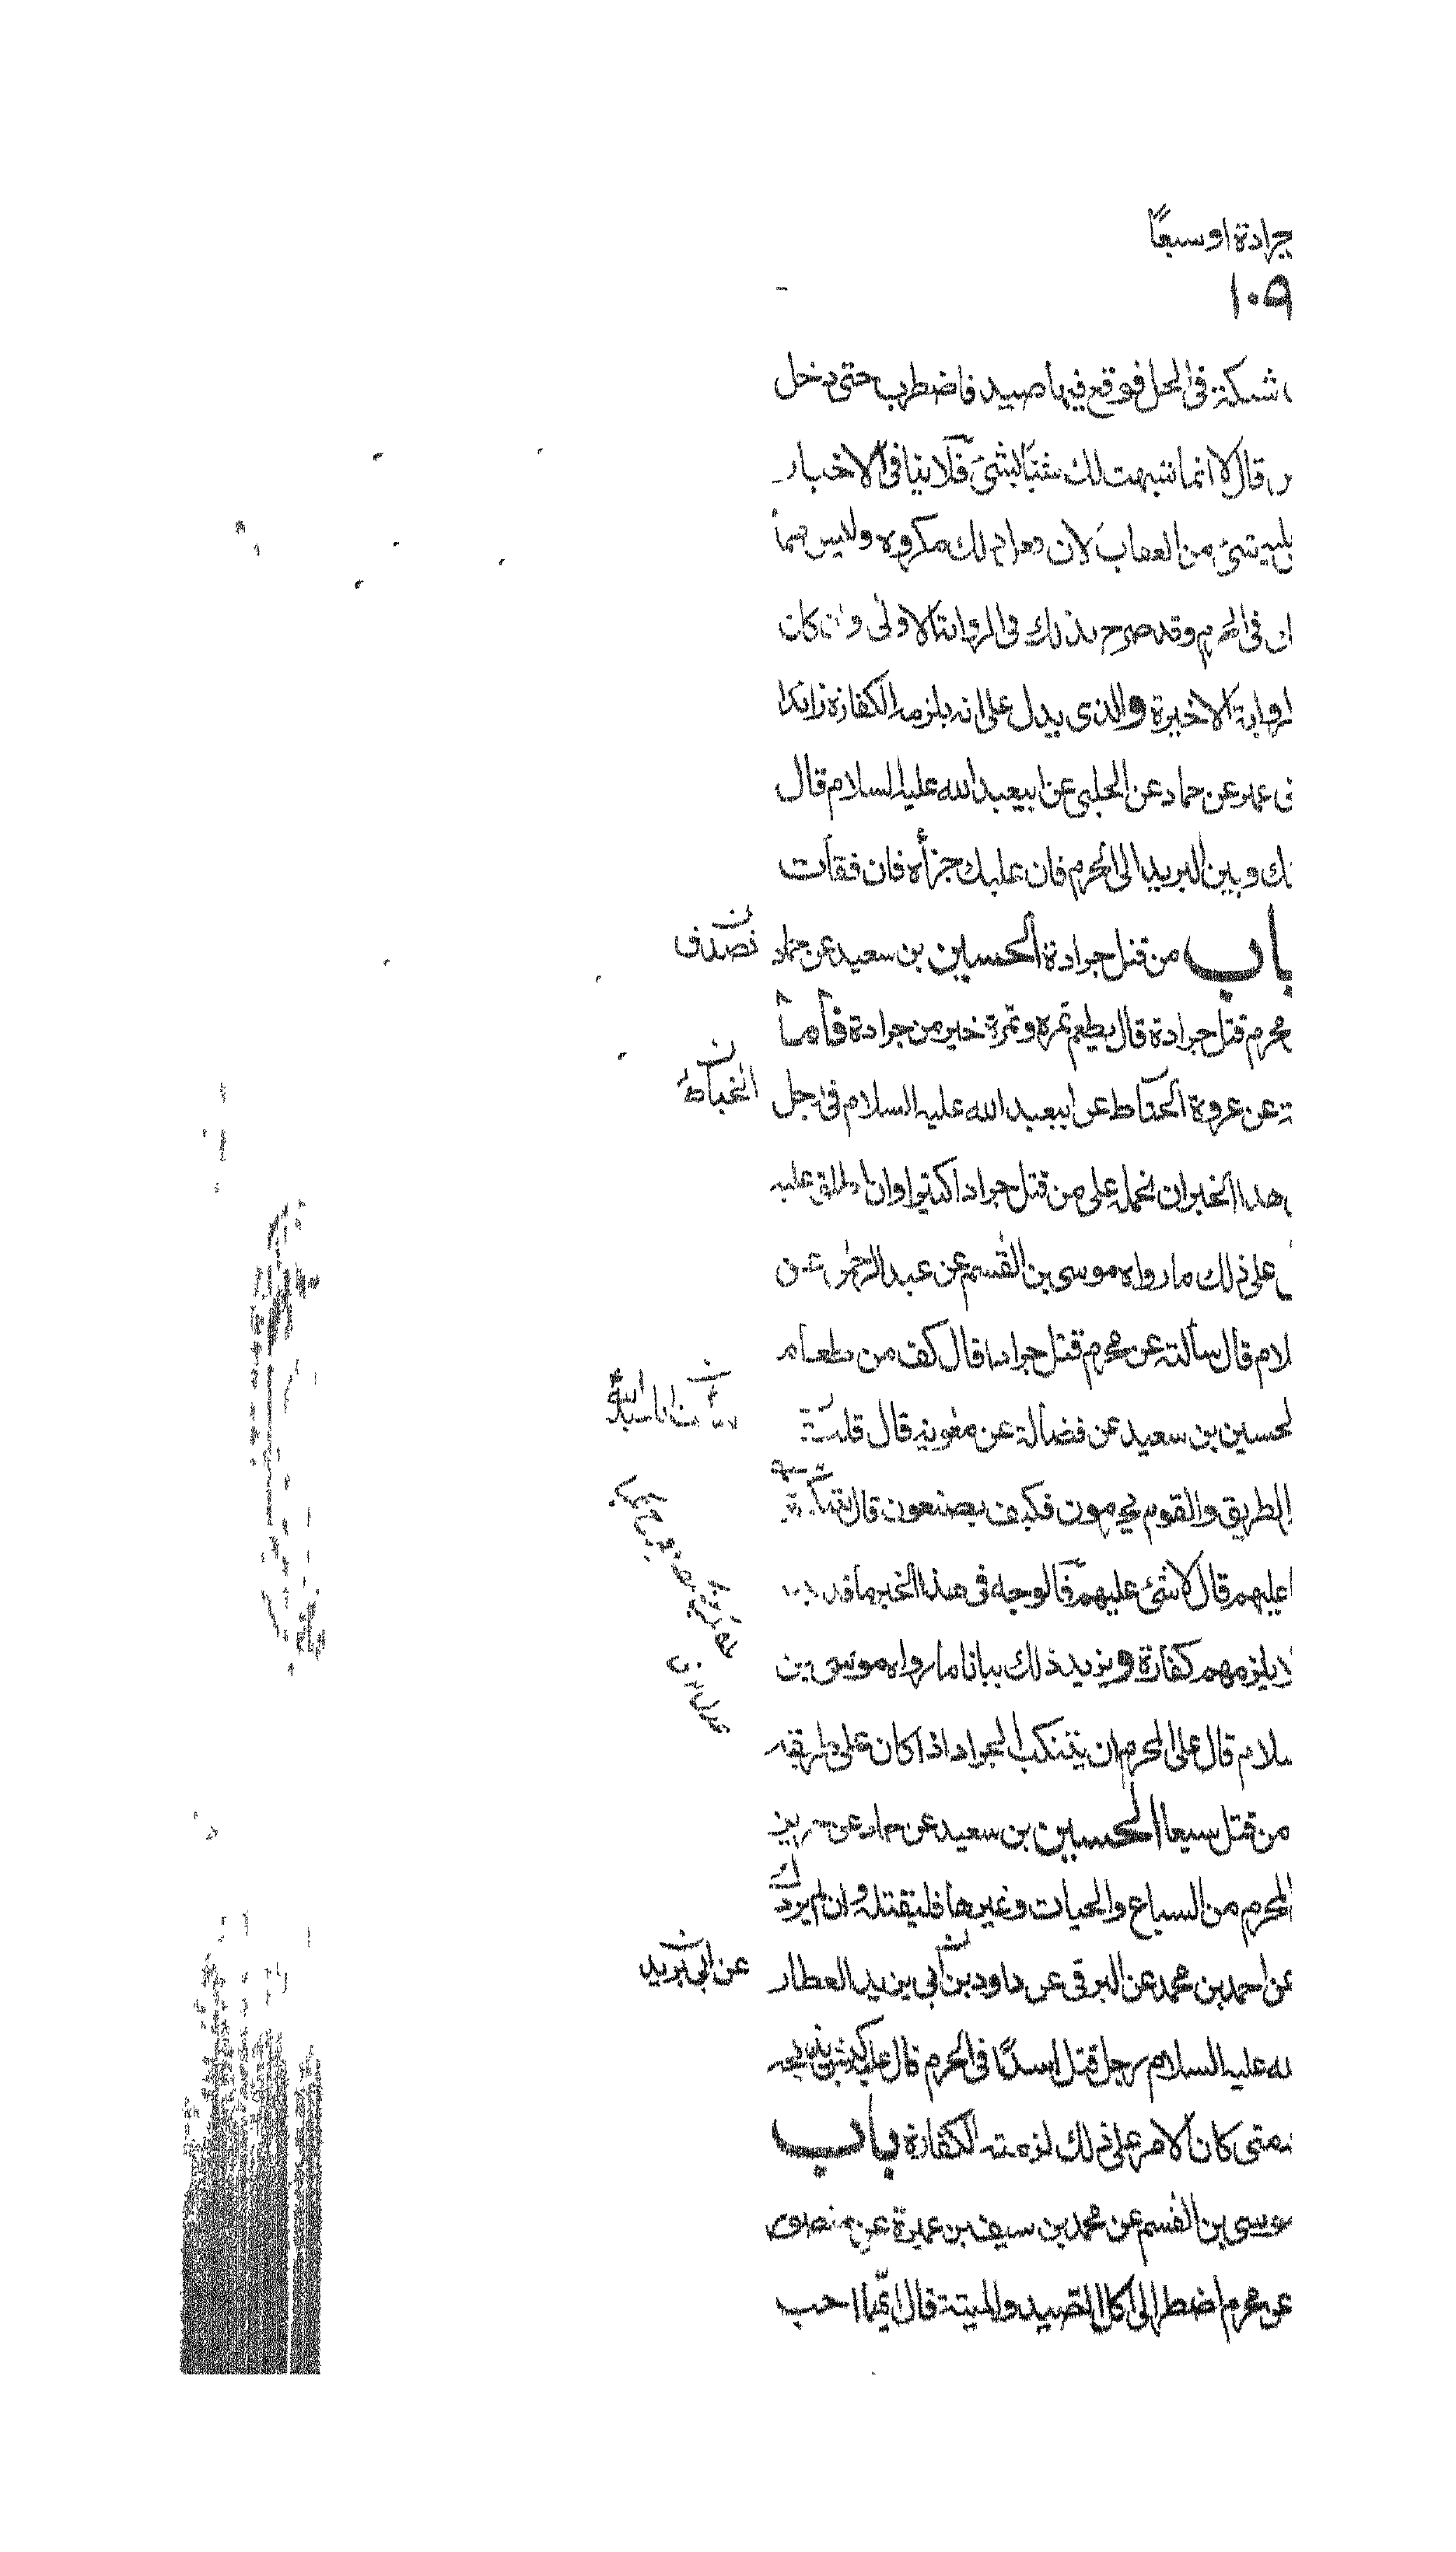 جرادة او سبعًا
١٠٩
شبكة فى الحل فوقع فيها صيد فاضطرب حتى دخل
قال لا انما شبهت لك شيئا بشئ فلا ينافى الاخبار
من العقاب لان ذلك مكروه وليس هما
فى الحرم وقد صرح بذلك فى الرواية الاولى وان كان
الرواية الاخيرة والذى يدل على انه يلزمه الكفارة زائدا
عن حماد عن الحلبى عن ابيعبد الله عليه السلام قال
وبين البريد الى الحرم فان عليك جزاه فان فقأت
باب من قتل جرادة الحسين بن سعيد عن حماد
تصدق
محرم قتل جرادة قال يطعم تمره وتمرة خير من جرادة فاما
عن عروة الحناط عن ابيعبد الله عليه السلام فى رجل
الخياط
هذا الخبر ان نحمله على من قتل جرادا كثيرا وان اطلق عليه
على ذلك ما رواه موسى بن القسم عن عبد الرحمن عن
لام قال سألته عن محرم قتل جرادا قال كف من طعام
لحسين بن سعيد عن فضالة عن معوية قال قلت
الطريق والقوم محرمون فكيف يصنعون قال
عليهم قال لا شئ عليهم فالوجه فى هذا الخبر ما قد
يلزمهم كفارة ويزيد ذلك بيانا ما رواه موسى بن
سلام قال على المحرم ان يتنكب الجراد اذا كان على طريقه
من قتل سبعا الحسين بن سعيد عن حماد عن حريز
المحرم من السباع والحيات وغيرها فليقتله وان لم يردك
عن احمد بن محمد عن البرقى عن داود بن ابى يزيد العطار
عن ابى يزيد
لله عليه السلام رجل قتل اسدًا فى الحرم قال عليه كبش يذبحه
متى كان الامر على ذلك لزمته الكفارة باب
موسى بن القسم عن محمد بن سيف بن عميرة عن منصور
عن محرم اضطر الى اكل الصيد والميتة قال ايّهما احب